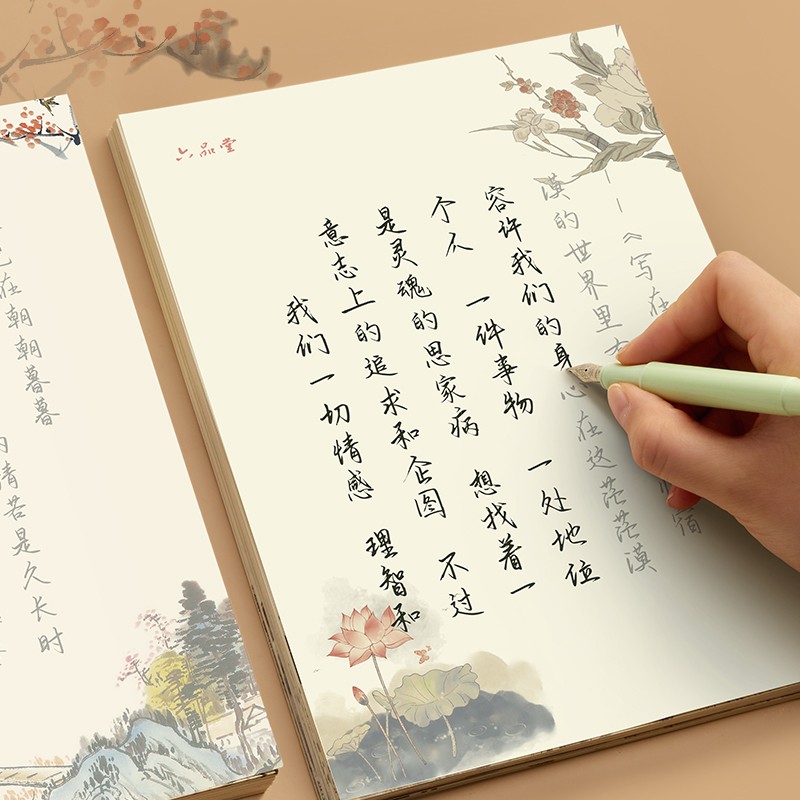 六品堂
我们一切情感 理智和
意志上的追求和企图 不过
是灵魂的思家病 想找着一
个人 一件事物 一处地位
容许我们的身心在这茫茫漠
漠的世界里 宿
——《写在
情若是久长时
在朝朝暮暮